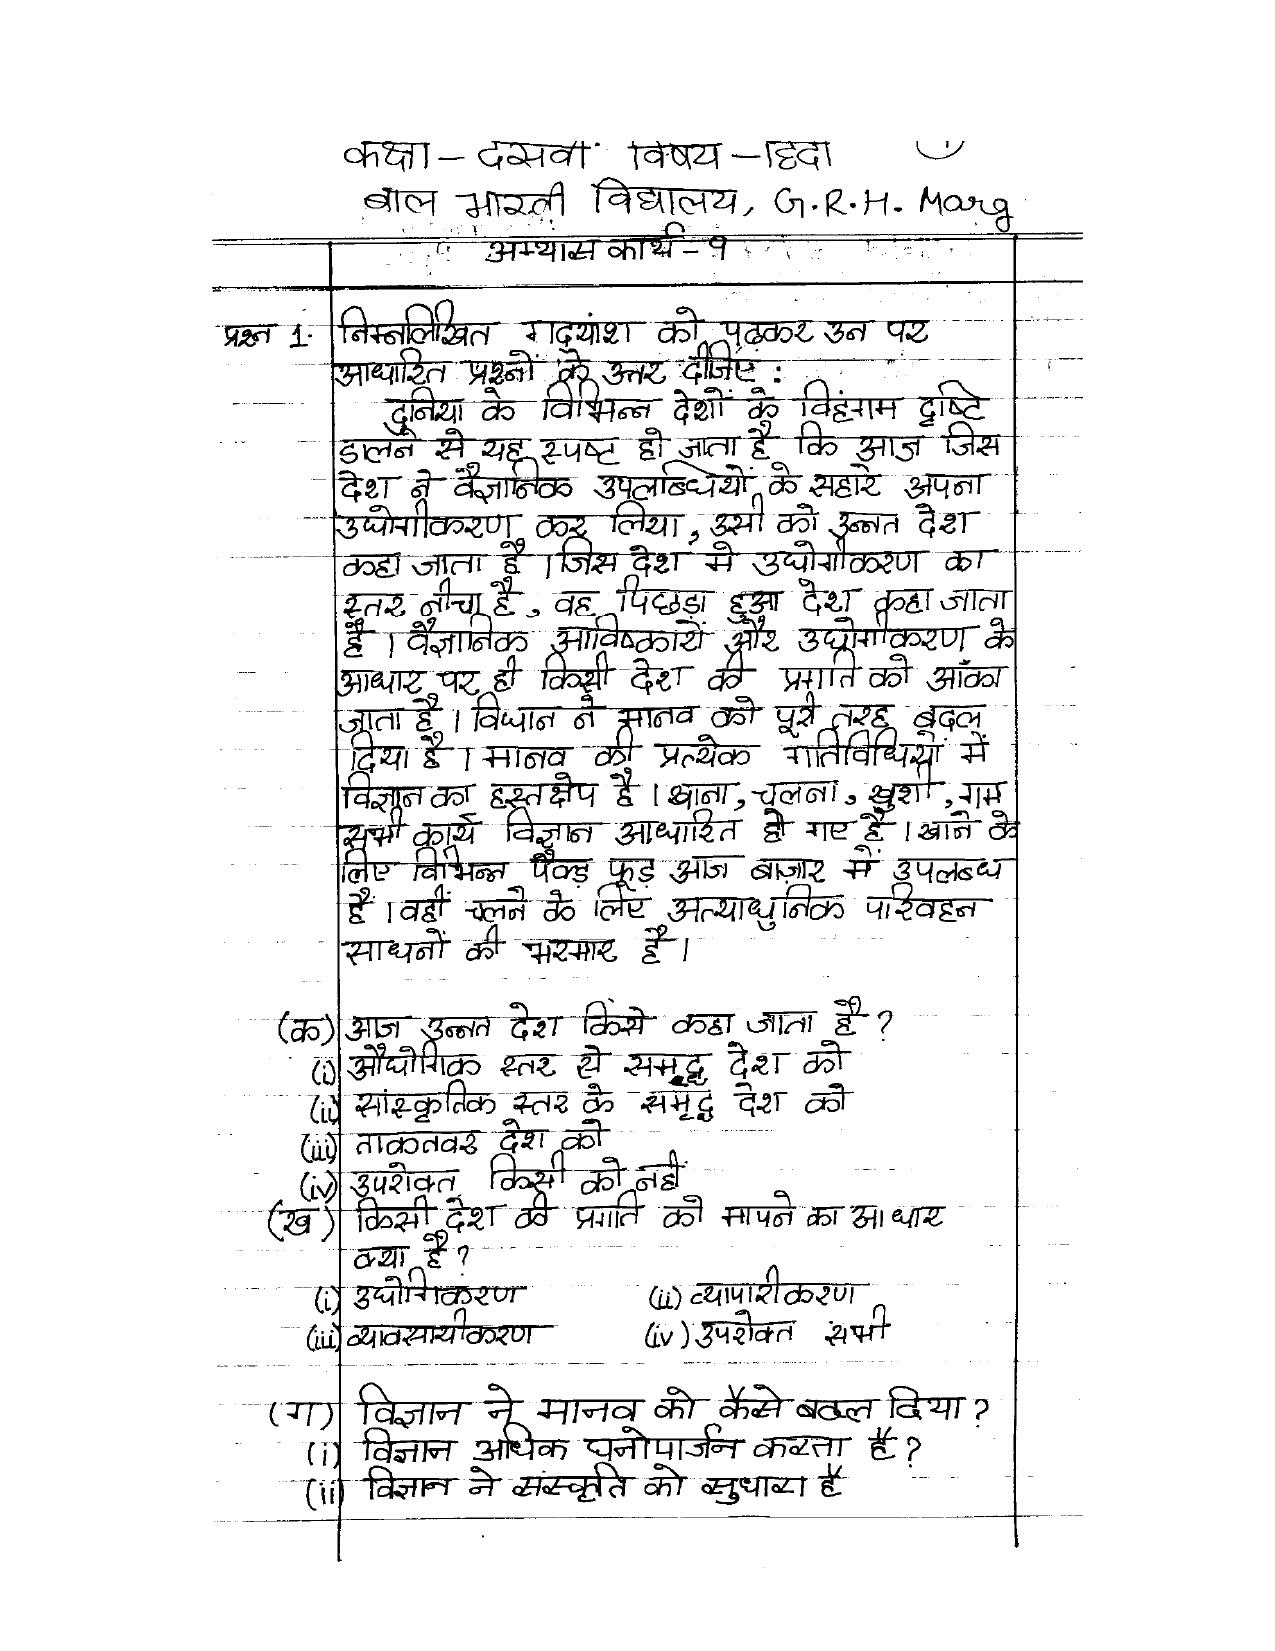 कक्षा – दसवीं विषय – हिंदी
बाल भारती विद्यालय, G.R.H. Marg
अभ्यास कार्य - १
प्रश्न 1. निम्नलिखित गद्यांश को पढ़कर उन पर
आधारित प्रश्नों के उत्तर दीजिए :
दुनिया के विभिन्न देशों के विहंगम दृष्टि
डालने से यह स्पष्ट हो जाता है कि आज जिस
देश ने वैज्ञानिक उपलब्धियों के सहारे अपना
उघोगीकरण कर लिया, उसी को उन्नत देश
कहा जाता है । जिस देश मे उघोगीकरण का
स्तर नीचा है, वह पिछड़ा हुआ देश कहा जाता
है । वैज्ञानिक आविष्कारों और उघोगीकरण के
आधार पर ही किसी देश की प्रगति को आँका
जाता है । विधान ने मानव को पूरी तरह बदल
दिया है । मानव की प्रत्येक गतिविधियों में
विज्ञान का हस्तक्षेप है । खाना, चलना, खुशी, गम
सभी कार्य विज्ञान आधारित हो गए हैं । खाने के
लिए विभिन्न पैक्ड फूड आज बाज़ार में उपलब्ध
हैं । वहीं चलने के लिए अत्याधुनिक परिवहन
साधनों की भरमार है ।
(क) आज उन्नत देश किसे कहा जाता है ?
(i) औघोगिक स्तर से समृद्ध देश को
(ii) सांस्कृतिक स्तर के समृद्ध देश को
(iii) ताकतवर देश को
(iv) उपरोक्त किसी को नहीं
(ख) किसी देश की प्रगति को मापने का आधार
क्या है ?
(i) उघोगिकरण (ii) व्यापारीकरण
(iii) व्यावसायीकरण (iv) उपरोक्त सभी
(ग) विज्ञान ने मानव को कैसे बदल दिया ?
(i) विज्ञान अधिक घनोपार्जन करता है ?
(ii) विज्ञान ने संस्कृति को सुधारा है